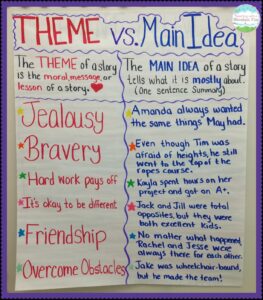 THEME vs. Main Idea
The THEME of a story
is the moral, message, or
lesson of a story.
The MAIN IDEA of a story
tells what it is mostly about.
(One Sentence Summary)
Jealousy
Bravery
Hard work pays off
It's okay to be different
Friendship
Overcome Obstacles
Amanda always wanted
the same things May had.
Even though Tim was
afraid of heights, he still
went to the top of the
ropes course.
Kayla spent hours on her
project and got an A+.
Jack and Jill were total
opposites, but they were
both excellent kids.
No matter what happened,
Rachel and Jesse were
always there for each other.
Jake was wheelchair-bound,
but he made the team!